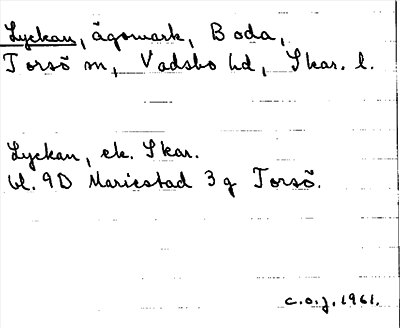 Lyckan, ägomark, Boda,
Torsö sn, Vadsbo hd, Skar. l.
Lyckan, ek. Skar.
bl. 9D Mariestad 3 g Torsö.
C.O.J. 1961.